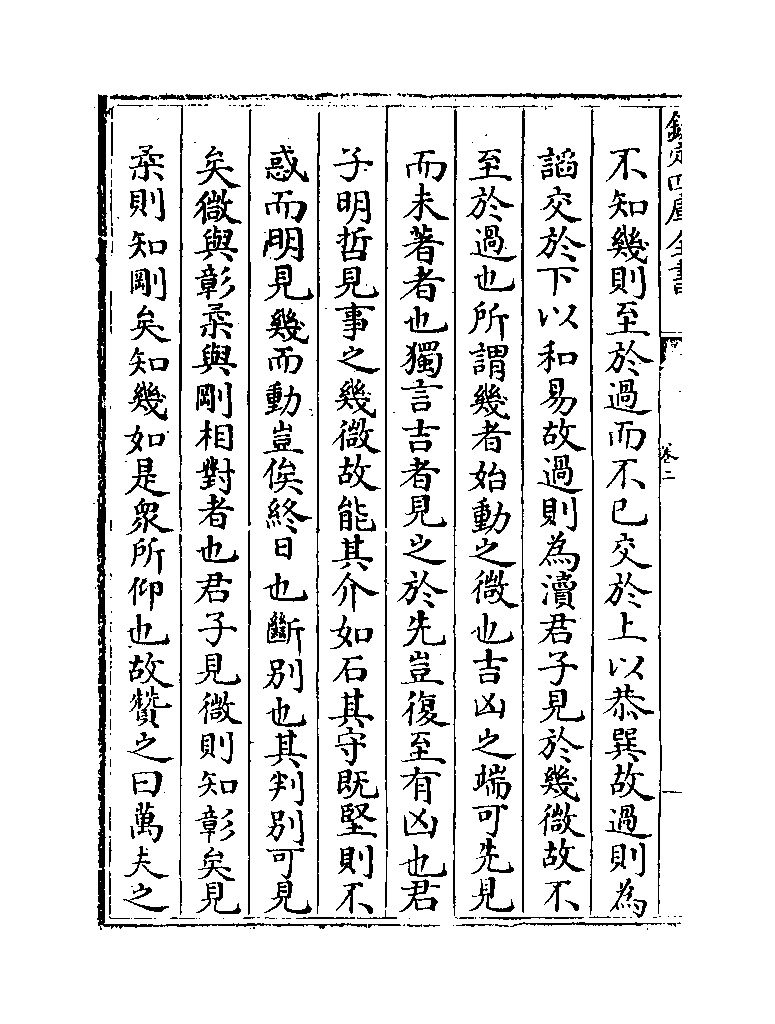 欽定四庫全書
卷二
不知幾則至於過而不已交於上以恭巽故過則為
謟交於下以和易故過則為瀆君子見於幾微故不
至於過也所謂幾者始動之微也吉凶之端可先見
而未著者也獨言吉者見之於先豈復至有凶也君
子明哲見事之幾微故能其介如石其守既堅則不
惑而明見幾而動豈俟終日也斷別也其判別可見
矣微與彰柔與剛相對者也君子見微則知彰矣見
柔則知剛矣知幾如是衆所仰也故贊之曰萬夫之